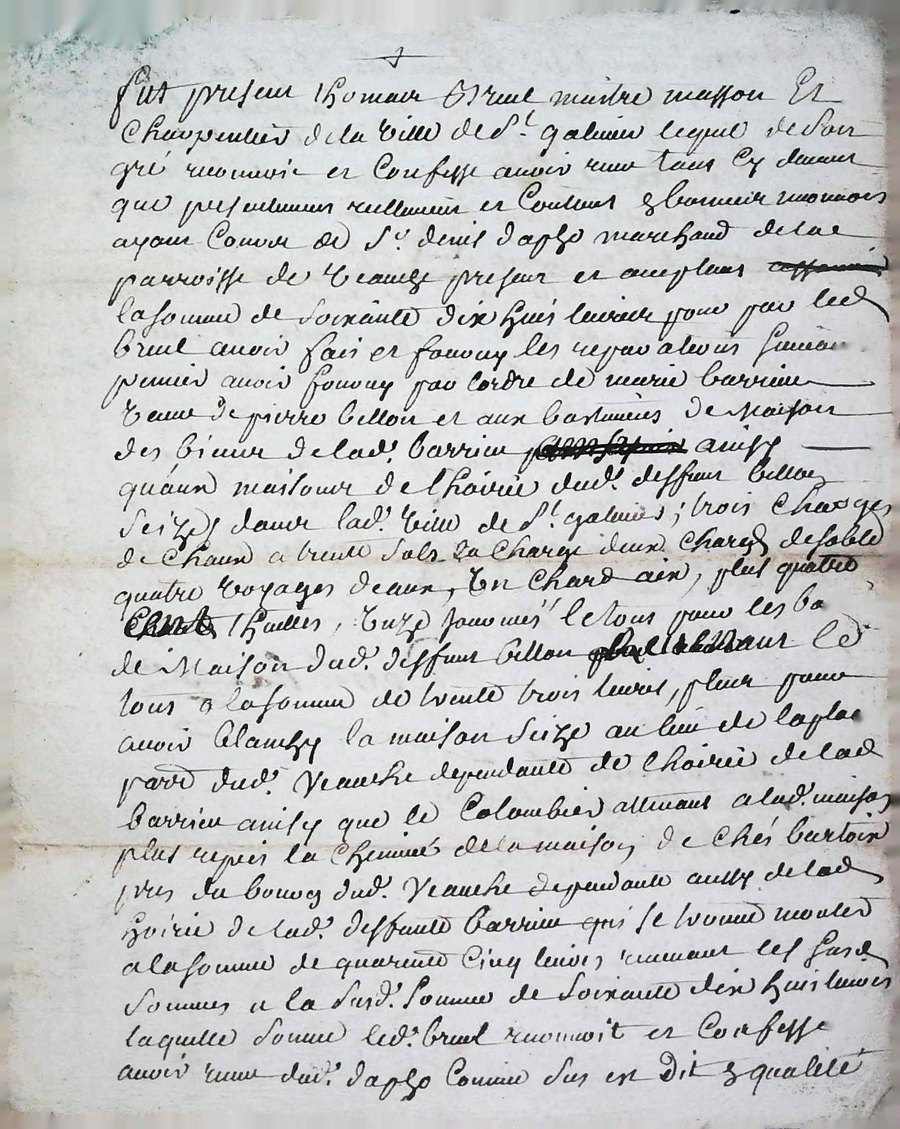 fut present Thomas Breul maitre masson Et
Charpentier de la Ville de St galmier lequel de son
gré reconnoit et Confesse avoir receu tant Cy devant
que presentement reellement et Contant
ayant Conver de Sr denis dapzo marchand de la
parroisse de Veauche present et acceptant
la somme de soixante dix huit livres pour par led
breul avoir fait et fourny les reparations
avoir fourny par lordre de marie barrieu
Veuve de pierre billon et aux bastiments de Maison
des biens de lad. barrieu ainsy
quaux maisons de lhoirie dud. deffunt billon
seizes dans lad. Ville de St galmier; trois Charges
de Chaux a trente sols La Charge deux Charges de sable
quatre Voyages deaux, Un Chard aix, plus quatre
Thuilles, Unze journées le tout pour les ba
de Maison dud. deffunt billon le
tout a la somme de trente trois livres, plus pour
avoir blanchy la maison seize au lieu de la plac
dud. Veauche dependante de lhoirie de lad
barrieu ainsy que le Colombier attenant a lad. maison
plus repris la Cheminé de la maison de Chés bartoin
pres du bourg dud. Veauche dependante aussy de lad
hoirie de lad. deffunte barrieu qui se trouve monter
a la somme de quarente Cinq livres revenant les susd
sommes a la susd. somme de soixante dix huit livres
laquelle somme led. breul reconnoit et Confesse
avoir receu dud. dapzo Comme sus est Dit & qualité